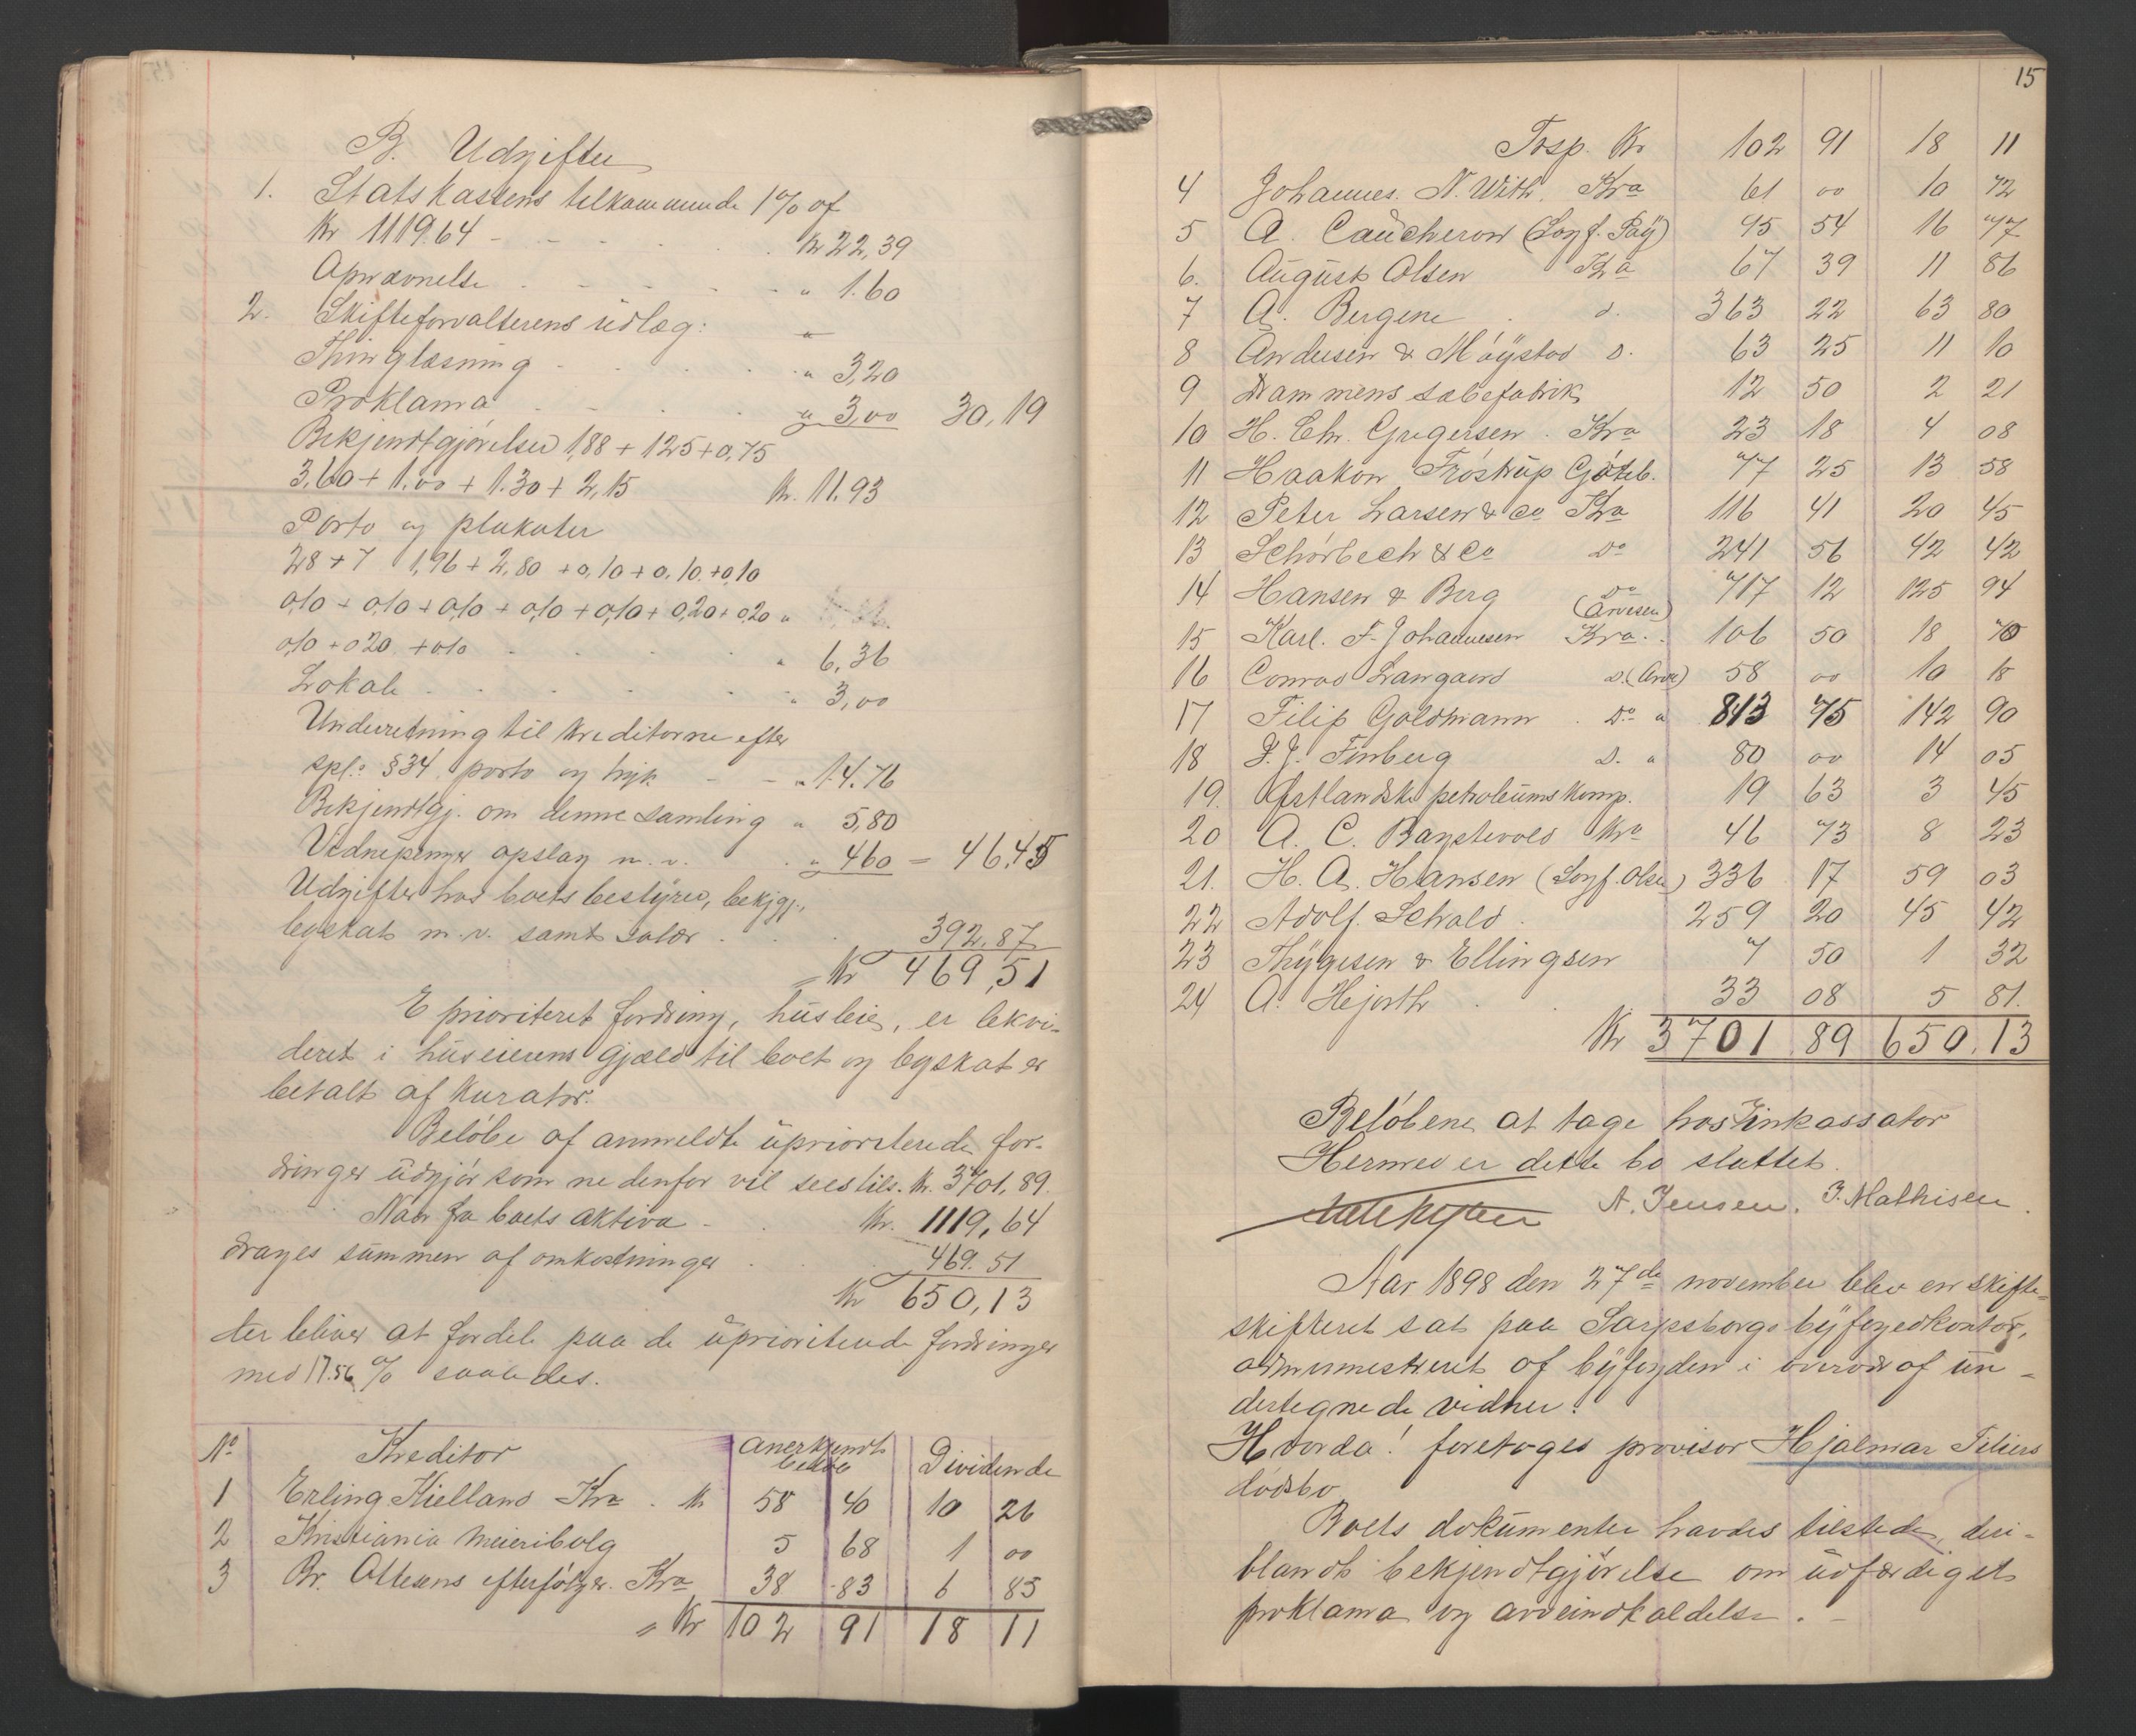 B. Udgifter
1. Statskassens tilkommende 1% af
Kr 1119.64 - - - Kr 22,39
Opnævnelse . - - - - " 1.60
2. Skifteforvalterens udlæg: "
Thinglæsning - . . . " 3,20
Proklama . - . . " 3,00 30,19
Bekjendtgjørelser 1,88 + 125 + 0,75
3,60 + 1.00 + 1.30 + 2,15 Kr. 11.93
Porto og plakater
28 + 7 1,96 + 2,80 + 0,10 + 0,10 + 0,10
0,10 + 0,10 + 0,10 + 0,10 + 0,10 + 0,20 + 0,20 "
0,10 + 020 + 0,10 - . . . " 6,36
Lokale . . . . . " 3,00
Underretning til kreditorne efter
skpl. § 34, porto og tryk - - " 14.76
Bekjendtgj. om denne samling " 5,80
Vidnepenger opslag m.v. . " 460 = 46.45
Udgifter hos boets bestyrer, bekjgj.,
byskat m.v. samt salær . . 392.87
= Kr 469,51
E prioriteret fordring, husleie, er lekvi-
deret i huseierens Gjæld til boet og byskat er
betalt af kurator.
Beløbe af anmeldte uprioriterede for-
dringer udgjør som nedenfor vil sees tils. Kr. 3701,89.
Naar fra boets aktiva - . Kr. 1119,64
drages summen af omkostninger . . 469.51
Kr 650,13
der bliver at fordele paa de uprioriterede fordringer
med 17.56 % saaledes.
No Kreditor Anerkjendt beløb Dividende
1 Erling Kielland Kra . Kr 58 40 10 26
2 Kristiania meieribolg 5 68 1 00
3 Br. Ottesens efterfølger. Kra 38 83 6 85
= Kr 102 91 18 11
15
Tsp. Kr 102 91 18 11
4 Johannes. N. With. Kra 61 00 10 72
5 A. Caucheron (Sagf. Pay) 95 54 16 77
6. August Olsen Kra 67 39 11 86
7 A. Bergene . d. 363 22 63 80
8 Andersen & Møystad d. 63 25 11 10
9 Drammens sæbefabrik 12 50 2 21
10 H. Chr. Gregersen . Kra 23 18 4 08
11 Haakon Trøstrup Gøteb. 77 25 13 58
12 Peter Larsen & Co Kra 116 41 20 45
13 Schørbech & Co Do 241 56 42 42
14 Hansen & Berg Do 717 12 125 94
15 Karl. F. Johannesen (Arvesen) Kra . 106 50 18 70
16 Conrad Langaard d. (Arve) 58 00 10 18
17 Filip Goldmann . Do " 813 75 142 90
18 F. J. Finberg D. " 80 00 14 05
19. Østlandske petroleumskomp. 19 63 3 45
20 A. C. Bangstevold Kra 46 73 8 23
21. H. A. Hansen (Sagf. Olsen) 336 17 59 03
22 Adolf Schald . 259 20 45 42
23 Thygesen & Ellingsen 7 50 1 32
24 A. Hejorth . 33 08 5 81.
Kr 3701 89 650.13
Beløbene at tage hos Inkassator
Hermed er dette bo sluttet.
A. Jensen. J. Mathisen.
Aar 1898 den 27de november blev en skifte-
skifteret sat paa Sarpsborgs byfogedkontor,
administreret af byfogden i overvær af un-
dertegnede vidner.
Hvorda! foretoges provisor Hjalmar Tiliers
dødsbo
Boets dokumenter havdes tilstede, deri-
blandt bekjendtgjørelse om udfærdiget
proklama og arveindkaldelse. -